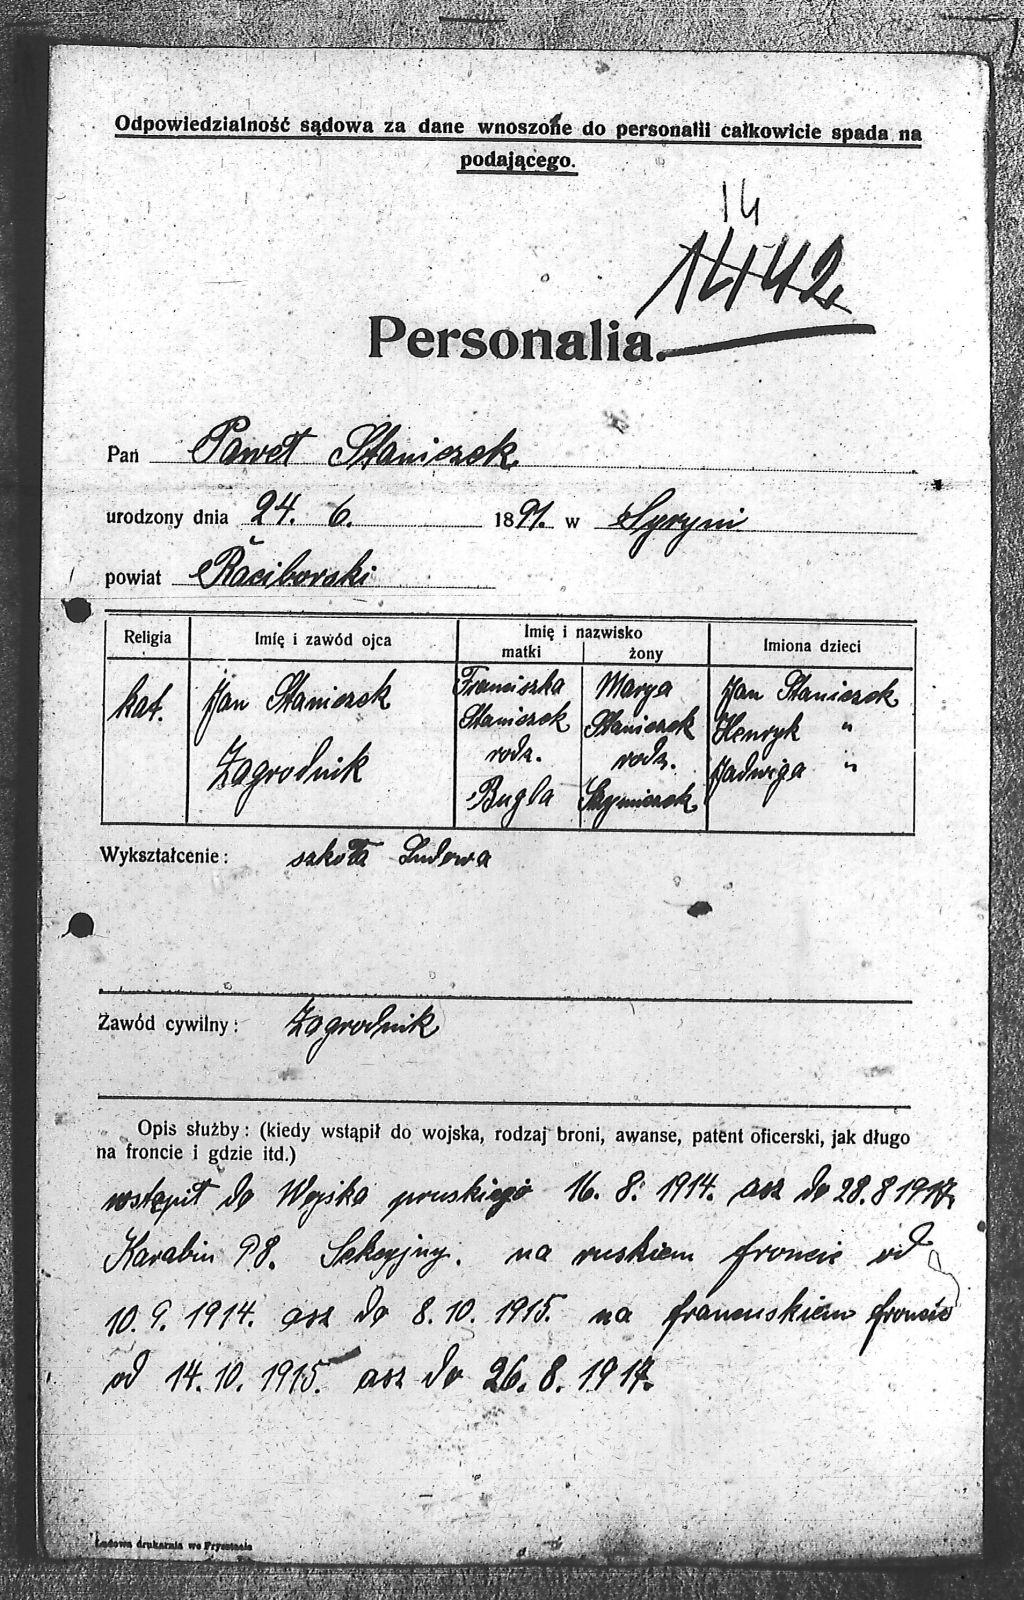 Odpowiedzialność sądowa za dane wnoszone do personalii całkowicie spada na
podającego.
14
1442
Personalia.
Pan Paweł Staniczek
urodzony dnia 24. 6. 1891. w Syryni
powiat Raciborski
Religia
Imię i zawód ojca
Imię i nazwisko
matki
żony
Imiona dzieci
kat.
Jan Staniczek
Zagrodnik
Franciszka
Staniczek
rodz.
Bugla
Marya
Staniczek
rodz.
Szymiczek
Jan Staniczek
Henryk "
Jadwiga "
Wykształcenie: szkoła Ludowa
Zawód cywilny: Zagrodnik
Opis służby: (kiedy wstąpił do wojska, rodzaj broni, awanse, patent oficerski, jak długo
na froncie i gdzie itd.)
wstąpił do Wojska pruskiego 16. 8. 1914. asz do 28. 8 1917.
Karabin 98. Sekcyjny. na ruskiem froncie od
10. 9. 1914. asz do 8. 10. 1915. na francuskiem froncie
od 14. 10. 1915. asz do 26. 8. 1917.
Ludowa drukarnia we Frysztacie